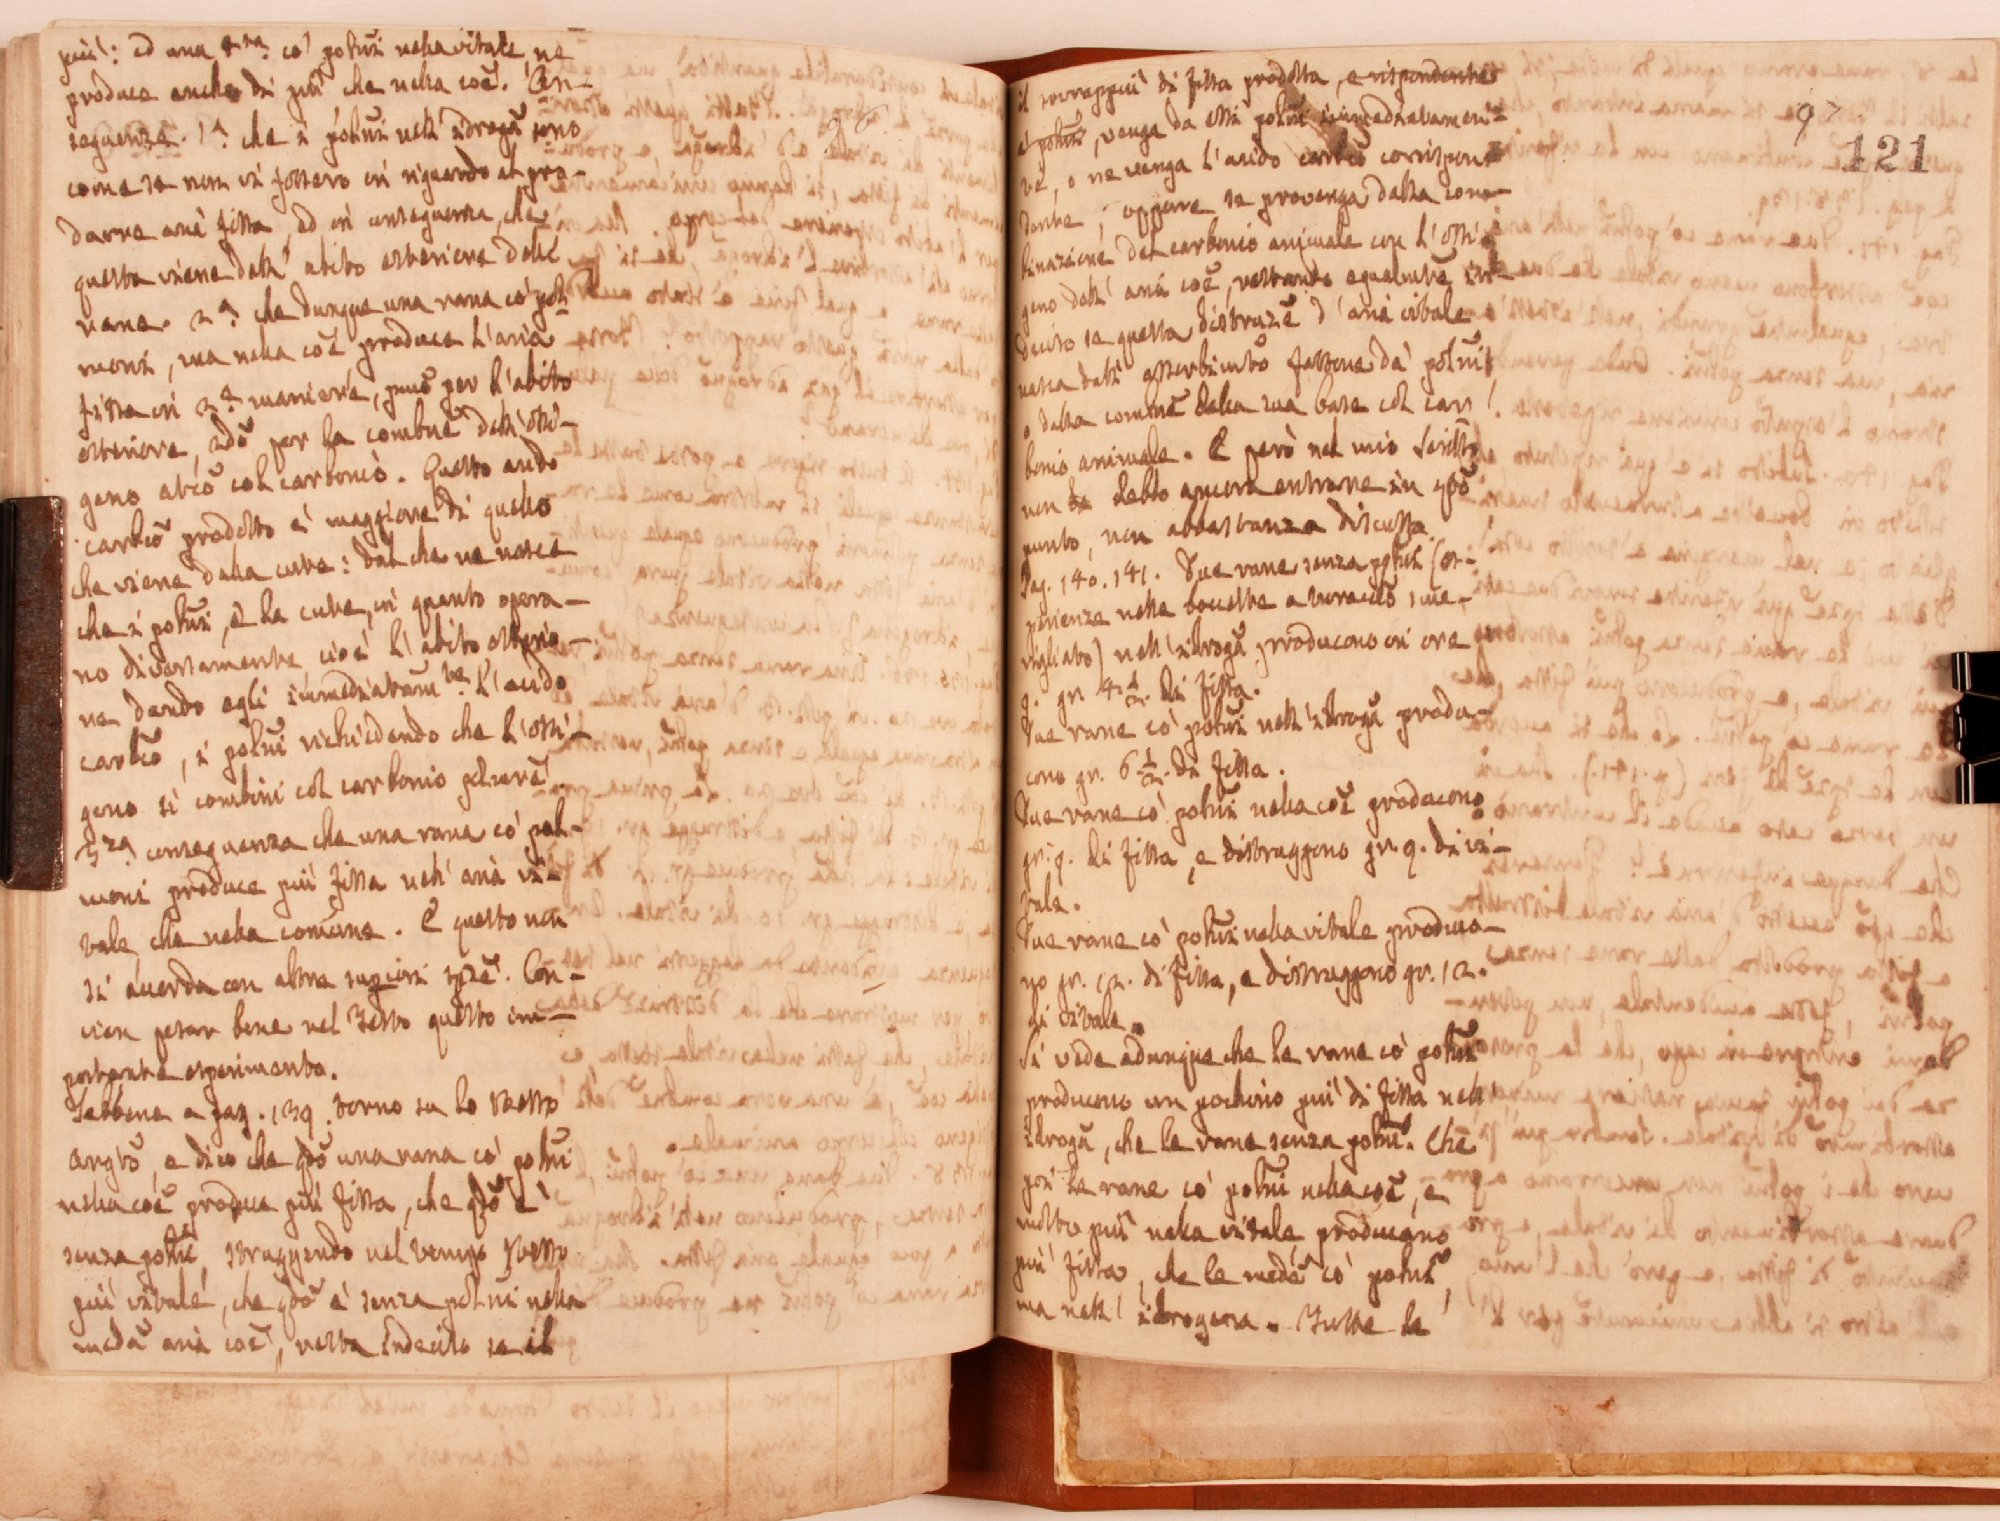 più: ed una 4.ta co' polm̃i nella vitale ne
produce anche di più che nella coẽ. Con-
seguenza. 1.a che i polm̃i nell'idrogã sono
come se non vi fossero in riguardo al pro-
durre arià fissa, ed in conseguenza, che
questa viene dall'abito esteriore delle
rane. 2.a che dunque una rana co' pol-
moni, ma nella coẽ produce l'aria
fissa in 2.e maniere, p̃mo per l'abito
esteriore, 2dõ per la combñe dell'ossi-
geno atm̃co col carbonio. Questo acido
carbcõ prodotto è maggiore di quello
che viene dalla cute: dal che ne nasce
che i polm̃i, e la cute, in quanto opera-
no diversamente cioè l'abito esterio-
re dando egli immediatam̃te l'acido
carbcõ, i polm̃i richiedendo che l'ossi-
geno si combini col carbonio polmarẽ.
3.za conseguenza che una rana co' pol-
moni produce più fissa nell'aria vi-
tale, che nella comune. E questo non
si accorda con altre sup̃iori spzẽ. Con-
vien pesar bene nel Testo questo im-
portante esperimento.
Sebbene a pag. 139. torno su lo stesso
argtõ, e dico che qdõ una rana co' polm̃i
nella coẽ produce più fissa, che qdõ è
senza polm̃i, struggendo nel tempo stesso
più vitale, che qdõ è senza polm̃i nella
medã aria coẽ, resta indeciso se il
96
97
121
il sovrappiù di fissa prodotta, e rispondente
a' polm̃i, venga da essi polm̃i immediatamen-
te, o ne venga l'acido carbcõ corrispon-
dente, oppure se provenga dalla com-
binazione del carbonio animale con l'ossi-
geno dell'aria coẽ, restando egualm̃te in-
deciso se questa distruzẽ d'aria vitale
nasca dall'assorbim̃to fattone da' polm̃i
o dalla comm̃e della sua base col car-
bonio animale. E però nel mio Scritto
non debbo ancora entrare in qstõ
punto, non abbastanza discusso.
Pag. 140. 141. Due rane senza polm̃i (es-
perienza nelle boccette a turacciõ sme-
rigliato) nell'idrogã producono in ore
9. gr. 4 1/2. di fissa.
Due rane co' polm̃i nell'idrogã produ-
cono gr. 6 1/2. di fissa.
Due rane co' polm̃i nella coẽ producono
gr. 9. di fissa, e distruggono gr. 9. di vi-
tale.
Due rane co' polm̃i nella vitale produco-
no gr. 12. di fissa, e distruggono gr. 12.
di vitale.
Si vede adunque che le rane co' polm̃i
producono un pochino più di fissa nell'
idrogã, che le rane senza polm̃i. Che
poi le rane co' polm̃i nella coẽ, e
molto più nella vitale producono
più fissa, che le medẽ co' polm̃i,
ma nell'idrogena. Tutte le